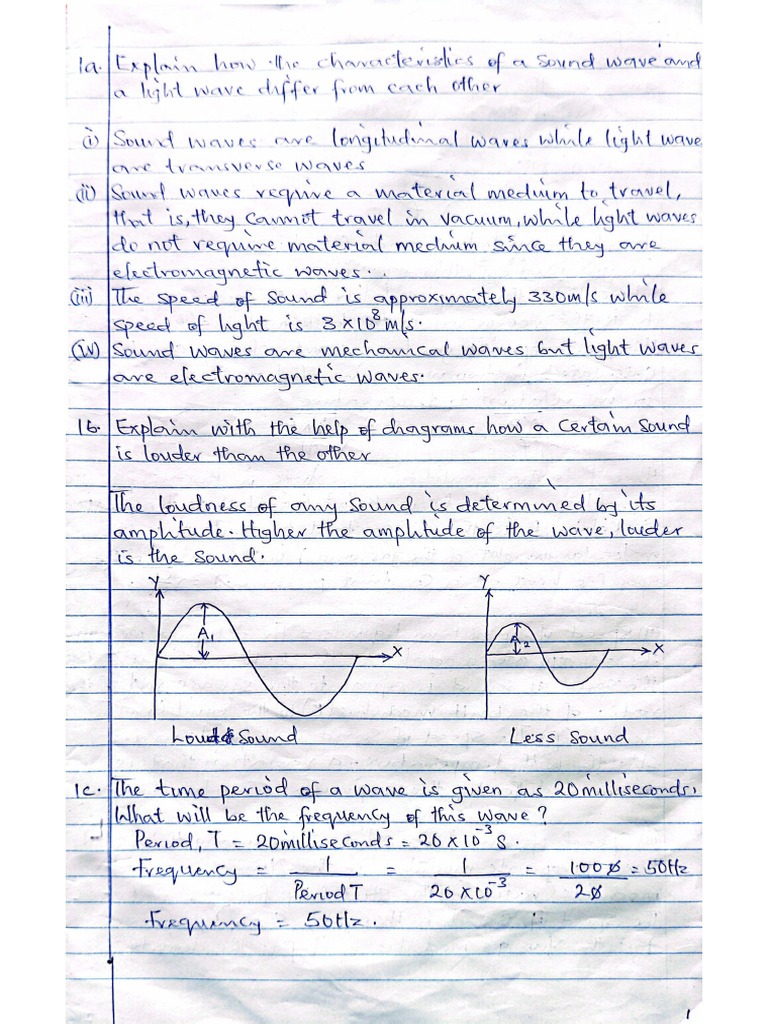 1a. Explain how the characteristics of a sound wave and
a light wave differ from each other
(i) Sound waves are longitudinal waves while light wave
are transverse waves
(ii) Sound waves require a material medium to travel,
that is, they cannot travel in vacuum, while light waves
do not require material medium since they are
electromagnetic waves.
(iii) The speed of sound is approximately 330m/s while
speed of light is 3 x 10⁸ m/s.
(iv) Sound waves are mechanical waves but light waves
are electromagnetic waves.
1b. Explain with the help of diagrams how a certain sound
is louder than the other
The loudness of any sound is determined by its
amplitude. Higher the amplitude of the wave, louder
is the sound.
Y Y
A₁ X A₂ X
Loud Sound Less sound
1c. The time period of a wave is given as 20milliseconds.
What will be the frequency of this wave?
Period, T = 20milliseconds = 20 x 10⁻³ S.
Frequency = 1/Period T = 1/20 x 10⁻³ = 1000/20 = 50Hz
Frequency = 50Hz.
1